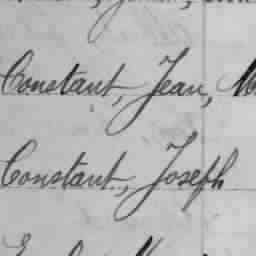 Constant, Jean, M
Constant, Joseph